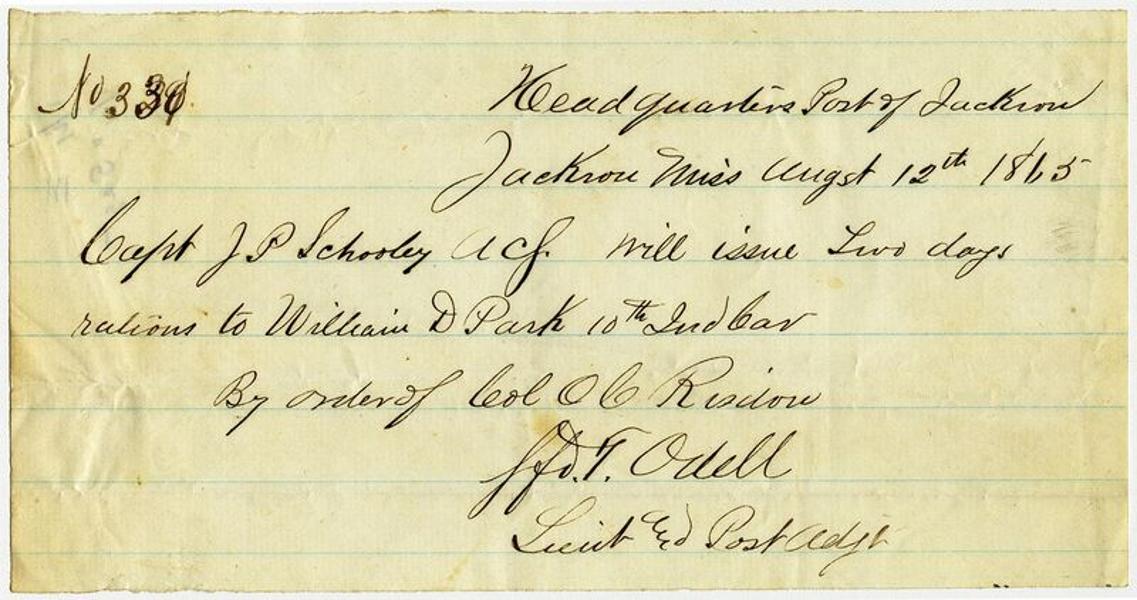 No 339 Head quarters Post of Jackson
Jackson Miss Augst 12th 1865
Capt J P Schooley ACS. will issue Two days
rations to William D Park 10th Ind Cav
By order of Col O C Risdon
T. Odell
Lieut & Post Adjt